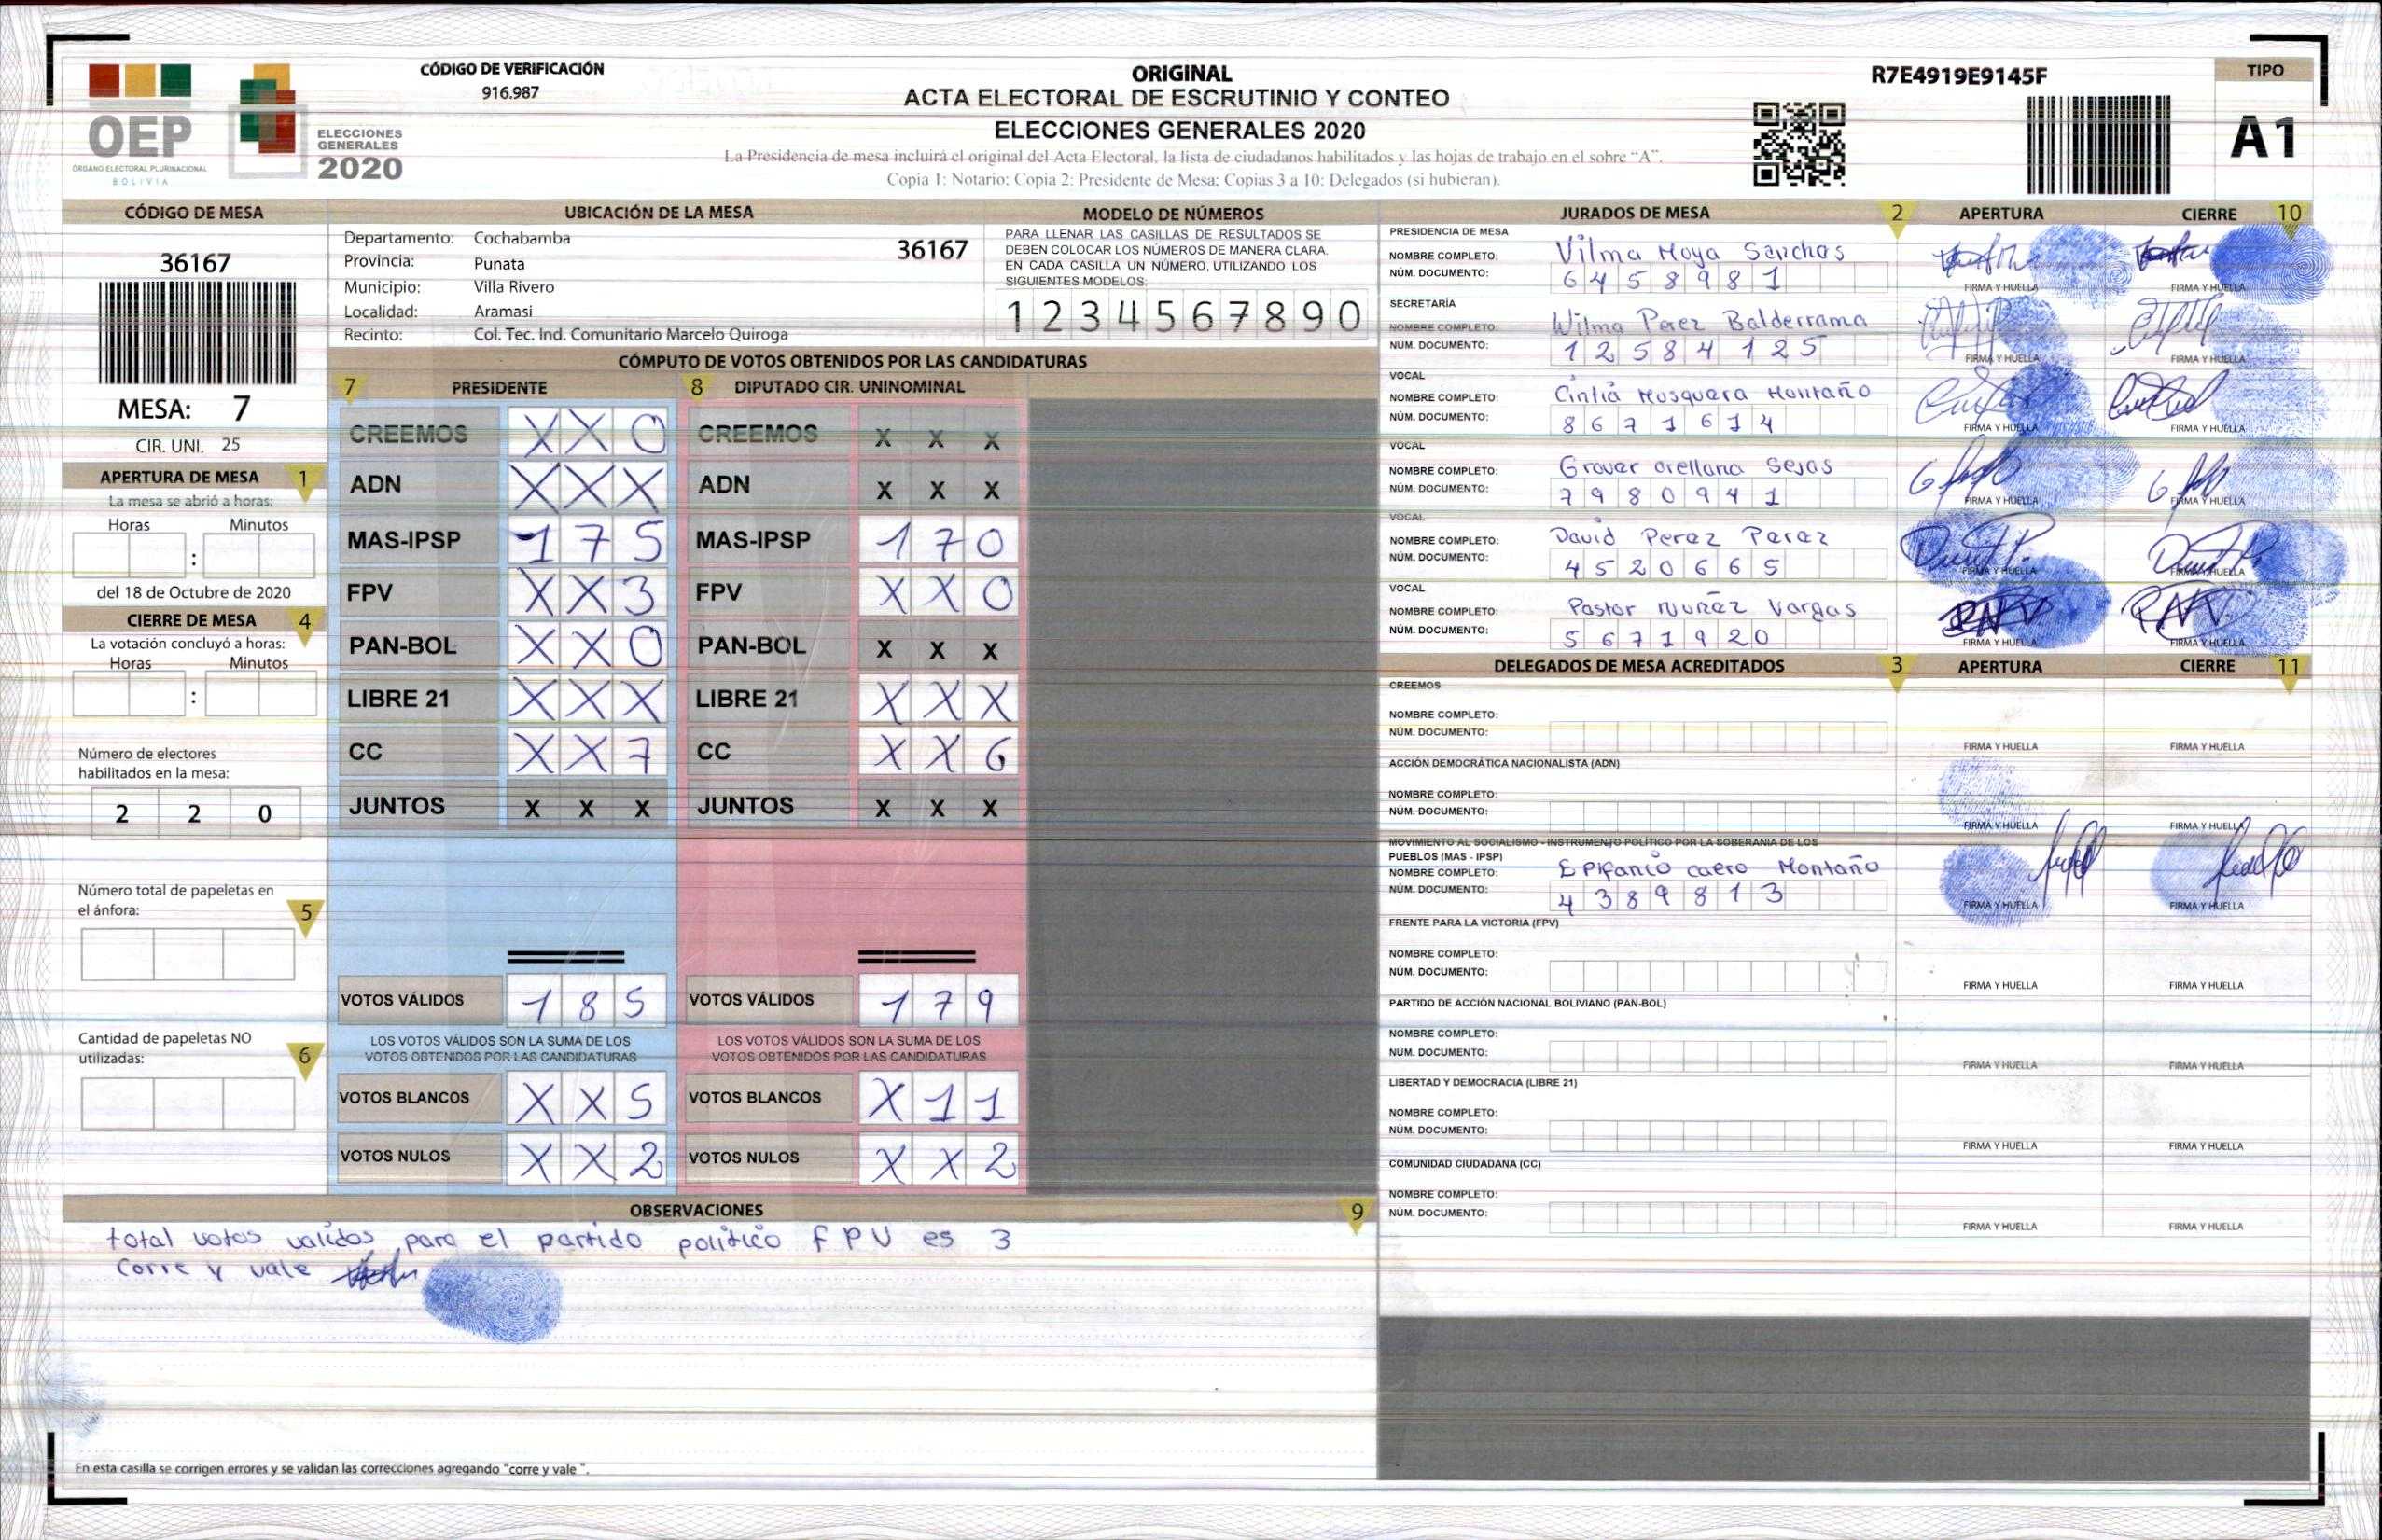 OEP
ÓRGANO ELECTORAL PLURINACIONAL
BOLIVIA
ELECCIONES
GENERALES
2020
CÓDIGO DE VERIFICACIÓN
916.987
ORIGINAL
ACTA ELECTORAL DE ESCRUTINIO Y CONTEO
ELECCIONES GENERALES 2020
La Presidencia de mesa incluirá el original del Acta Electoral, la lista de ciudadanos habilitados y las hojas de trabajo en el sobre “A”.
Copia 1: Notario; Copia 2: Presidente de Mesa; Copias 3 a 10: Delegados (si hubieran).
R7E4919E9145F
TIPO
A1
CÓDIGO DE MESA
36167
MESA: 7
CIR. UNI. 25
APERTURA DE MESA 1
La mesa se abrió a horas:
Horas Minutos
:
del 18 de Octubre de 2020
CIERRE DE MESA 4
La votación concluyó a horas:
Horas Minutos
:
Número de electores
habilitados en la mesa:
2 2 0
Número total de papeletas en
el ánfora:
5
Cantidad de papeletas NO
utilizadas:
6
UBICACIÓN DE LA MESA
Departamento: Cochabamba
36167
Provincia: Punata
Municipio: Villa Rivero
Localidad: Aramasi
Recinto: Col. Tec. Ind. Comunitario Marcelo Quiroga
MODELO DE NÚMEROS
PARA LLENAR LAS CASILLAS DE RESULTADOS SE
DEBEN COLOCAR LOS NÚMEROS DE MANERA CLARA.
EN CADA CASILLA UN NÚMERO, UTILIZANDO LOS
SIGUIENTES MODELOS:
1 2 3 4 5 6 7 8 9 0
CÓMPUTO DE VOTOS OBTENIDOS POR LAS CANDIDATURAS
7 PRESIDENTE 8 DIPUTADO CIR. UNINOMINAL
CREEMOS X X 0 CREEMOS X X X
ADN X X X ADN X X X
MAS-IPSP 1 7 5 MAS-IPSP 1 7 0
FPV X X 3 FPV X X 0
PAN-BOL X X 0 PAN-BOL X X X
LIBRE 21 X X X LIBRE 21 X X X
CC X X 7 CC X X 6
JUNTOS X X X JUNTOS X X X
VOTOS VÁLIDOS 1 8 5 VOTOS VÁLIDOS 1 7 9
LOS VOTOS VÁLIDOS SON LA SUMA DE LOS LOS VOTOS VÁLIDOS SON LA SUMA DE LOS
VOTOS OBTENIDOS POR LAS CANDIDATURAS VOTOS OBTENIDOS POR LAS CANDIDATURAS
VOTOS BLANCOS X X 5 VOTOS BLANCOS X 1 1
VOTOS NULOS X X 2 VOTOS NULOS X X 2
OBSERVACIONES 9
total votos validos para el partido politico FPV es 3
Corre y vale
En esta casilla se corrigen errores y se validan las correcciones agregando "corre y vale ".
JURADOS DE MESA 2 APERTURA CIERRE 10
PRESIDENCIA DE MESA
NOMBRE COMPLETO: Vilma Moya Sanchas
NÚM. DOCUMENTO: 6 4 5 8 9 8 1
FIRMA Y HUELLA FIRMA Y HUELLA
SECRETARÍA
NOMBRE COMPLETO: Wilma Perez Balderrama
NÚM. DOCUMENTO: 1 2 5 8 4 1 2 5
FIRMA Y HUELLA FIRMA Y HUELLA
VOCAL
NOMBRE COMPLETO: Cintia Musquera Montaño
NÚM. DOCUMENTO: 8 6 7 1 6 1 4
FIRMA Y HUELLA FIRMA Y HUELLA
VOCAL
NOMBRE COMPLETO: Grover orellana Sejas
NÚM. DOCUMENTO: 7 9 8 0 9 4 1
FIRMA Y HUELLA FIRMA Y HUELLA
VOCAL
NOMBRE COMPLETO: David Perez Perez
NÚM. DOCUMENTO: 4 5 2 0 6 6 5
FIRMA Y HUELLA FIRMA Y HUELLA
VOCAL
NOMBRE COMPLETO: Pastor Nuñez Vargas
NÚM. DOCUMENTO: 5 6 7 1 9 2 0
FIRMA Y HUELLA FIRMA Y HUELLA
DELEGADOS DE MESA ACREDITADOS 3 APERTURA CIERRE 11
CREEMOS
NOMBRE COMPLETO:
NÚM. DOCUMENTO:
FIRMA Y HUELLA FIRMA Y HUELLA
ACCIÓN DEMOCRÁTICA NACIONALISTA (ADN)
NOMBRE COMPLETO:
NÚM. DOCUMENTO:
FIRMA Y HUELLA FIRMA Y HUELLA
MOVIMIENTO AL SOCIALISMO - INSTRUMENTO POLÍTICO POR LA SOBERANIA DE LOS
PUEBLOS (MAS - IPSP)
NOMBRE COMPLETO: Epifanio caero Montaño
NÚM. DOCUMENTO: 4 3 8 9 8 1 3
FIRMA Y HUELLA FIRMA Y HUELLA
FRENTE PARA LA VICTORIA (FPV)
NOMBRE COMPLETO:
NÚM. DOCUMENTO:
FIRMA Y HUELLA FIRMA Y HUELLA
PARTIDO DE ACCIÓN NACIONAL BOLIVIANO (PAN-BOL)
NOMBRE COMPLETO:
NÚM. DOCUMENTO:
FIRMA Y HUELLA FIRMA Y HUELLA
LIBERTAD Y DEMOCRACIA (LIBRE 21)
NOMBRE COMPLETO:
NÚM. DOCUMENTO:
FIRMA Y HUELLA FIRMA Y HUELLA
COMUNIDAD CIUDADANA (CC)
NOMBRE COMPLETO:
NÚM. DOCUMENTO:
FIRMA Y HUELLA FIRMA Y HUELLA